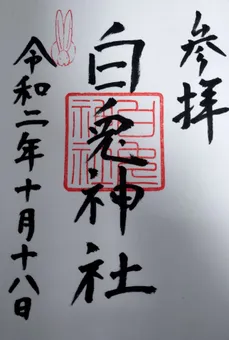 参拝
白兎神社
令和二年十月十八日